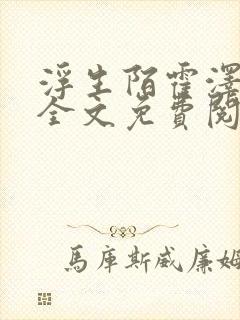 浮生陌霍澤
全文免費閱
馬庫斯威廉姆